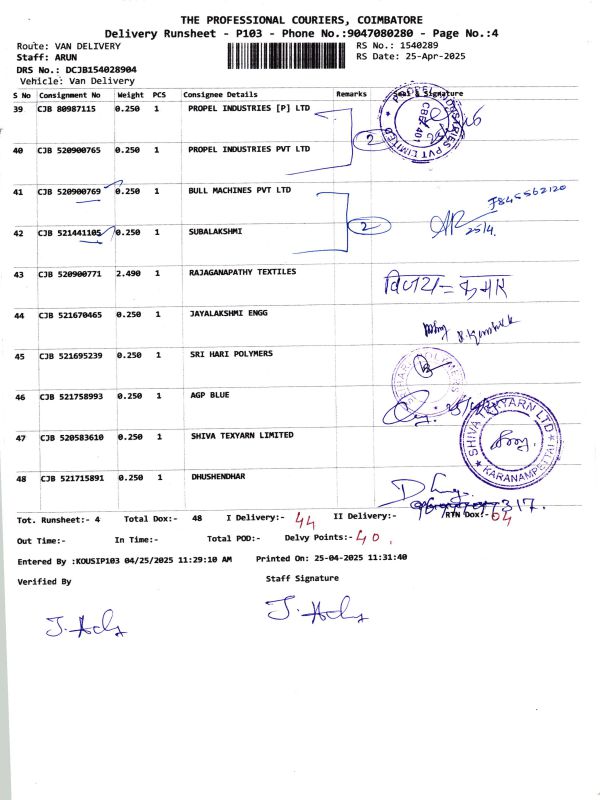 THE PROFESSIONAL COURIERS, COIMBATORE
Delivery Runsheet - P103 - Phone No.:9047080280 - Page No.:4
Route: VAN DELIVERY RS No.: 1540289
Staff: ARUN RS Date: 25-Apr-2025
DRS No.: DCJB154028904
Vehicle: Van Delivery
S No Consignment No Weight PCS Consignee Details Remarks Seal & Signature
39 CJB 80987115 0.250 1 PROPEL INDUSTRIES [P] LTD
PROPEL INDUSTRIES PVT LIMITED
CBE 401
2
40 CJB 520900765 0.250 1 PROPEL INDUSTRIES PVT LTD
41 CJB 520900769 0.250 1 BULL MACHINES PVT LTD
7845562120
2
25/4.
42 CJB 521441105 0.250 1 SUBALAKSHMI
43 CJB 520900771 2.490 1 RAJAGANAPATHY TEXTILES
44 CJB 521670465 0.250 1 JAYALAKSHMI ENGG
45 CJB 521695239 0.250 1 SRI HARI POLYMERS
46 CJB 521758993 0.250 1 AGP BLUE
47 CJB 520583610 0.250 1 SHIVA TEXYARN LIMITED
SHIVA TEXYARN LTD
KARANAMPETTAI
48 CJB 521715891 0.250 1 DHUSHENDHAR
Tot. Runsheet:- 4 Total Dox:- 48 I Delivery:- 44 II Delivery:- RTN Dox:- 04
Out Time:- In Time:- Total POD:- Delvy Points:- 40.
Entered By :KOUSIP103 04/25/2025 11:29:10 AM Printed On: 25-04-2025 11:31:40
Verified By Staff Signature